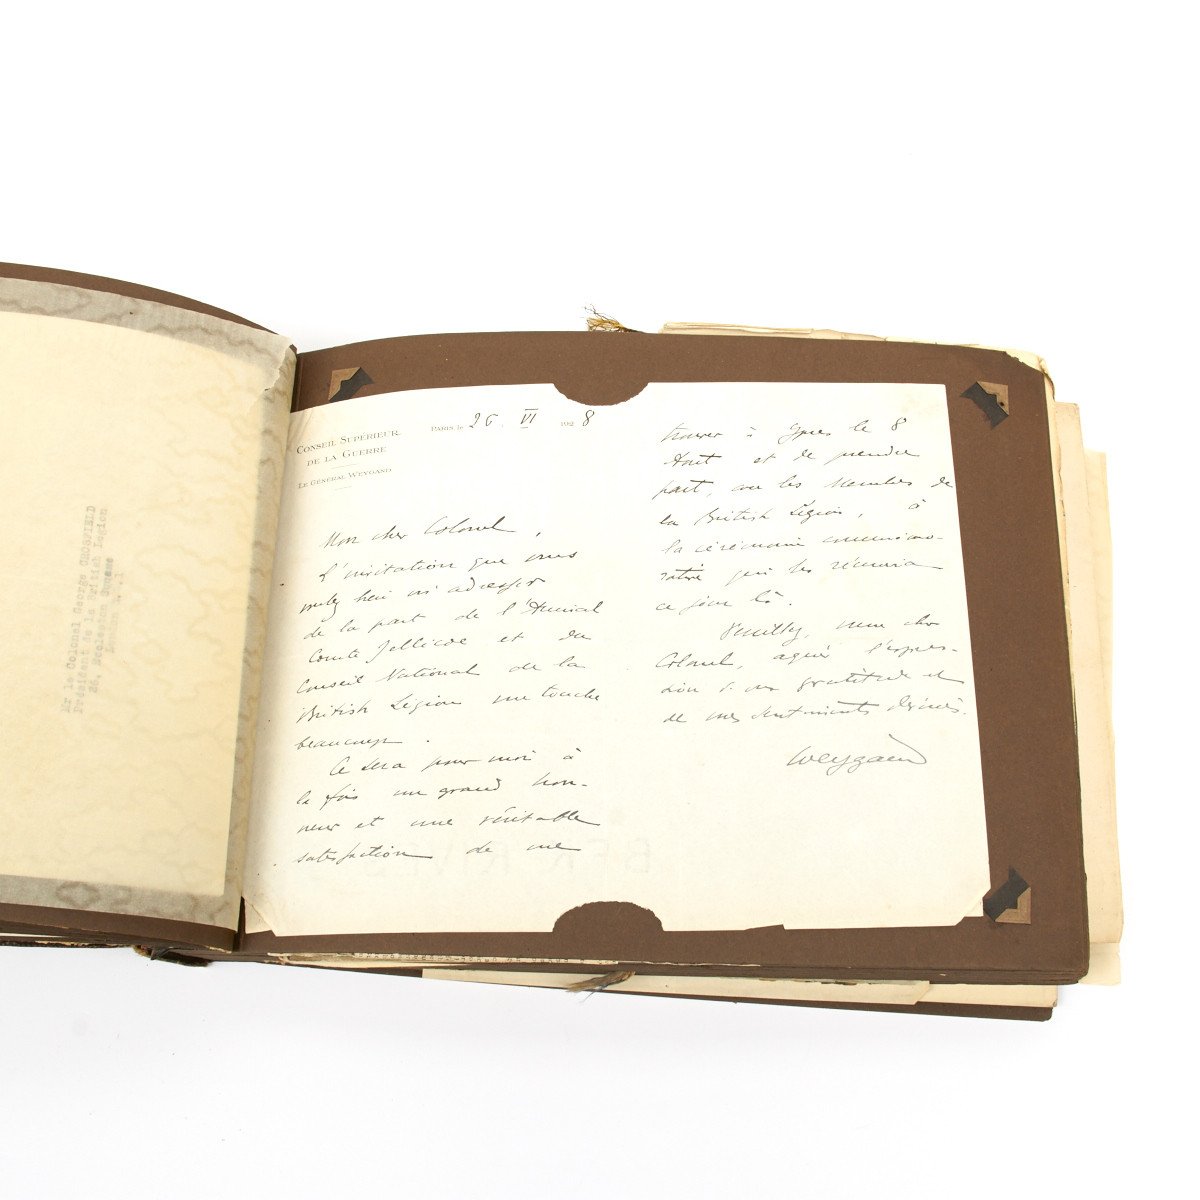 Mr le Colonel George CROSFIELD
Président de la British Legion
26, Eccleston Square
London W.1
CONSEIL SUPÉRIEUR
DE LA GUERRE
LE GÉNÉRAL WEYGAND
PARIS le 26. VI 1928
Mon cher Colonel,
L'invitation que vous
voulez bien m'adresser
de la part de l'Amiral
Comte Jellicoe et du
Conseil National de la
British Légion me touche
beaucoup.
Ce sera pour moi à
la fois un grand hon-
neur et une véritable
satisfaction de me
trouver à Ypres le 8
Août et de prendre
part, avec les Membres de
la British Légion, à
la cérémonie commémo-
rative qui les réunira
ce jour là.
Veuillez, mon cher
Colonel, agréer l'expres-
sion de ma gratitude et
de mes sentiments dévoués.
Weygand